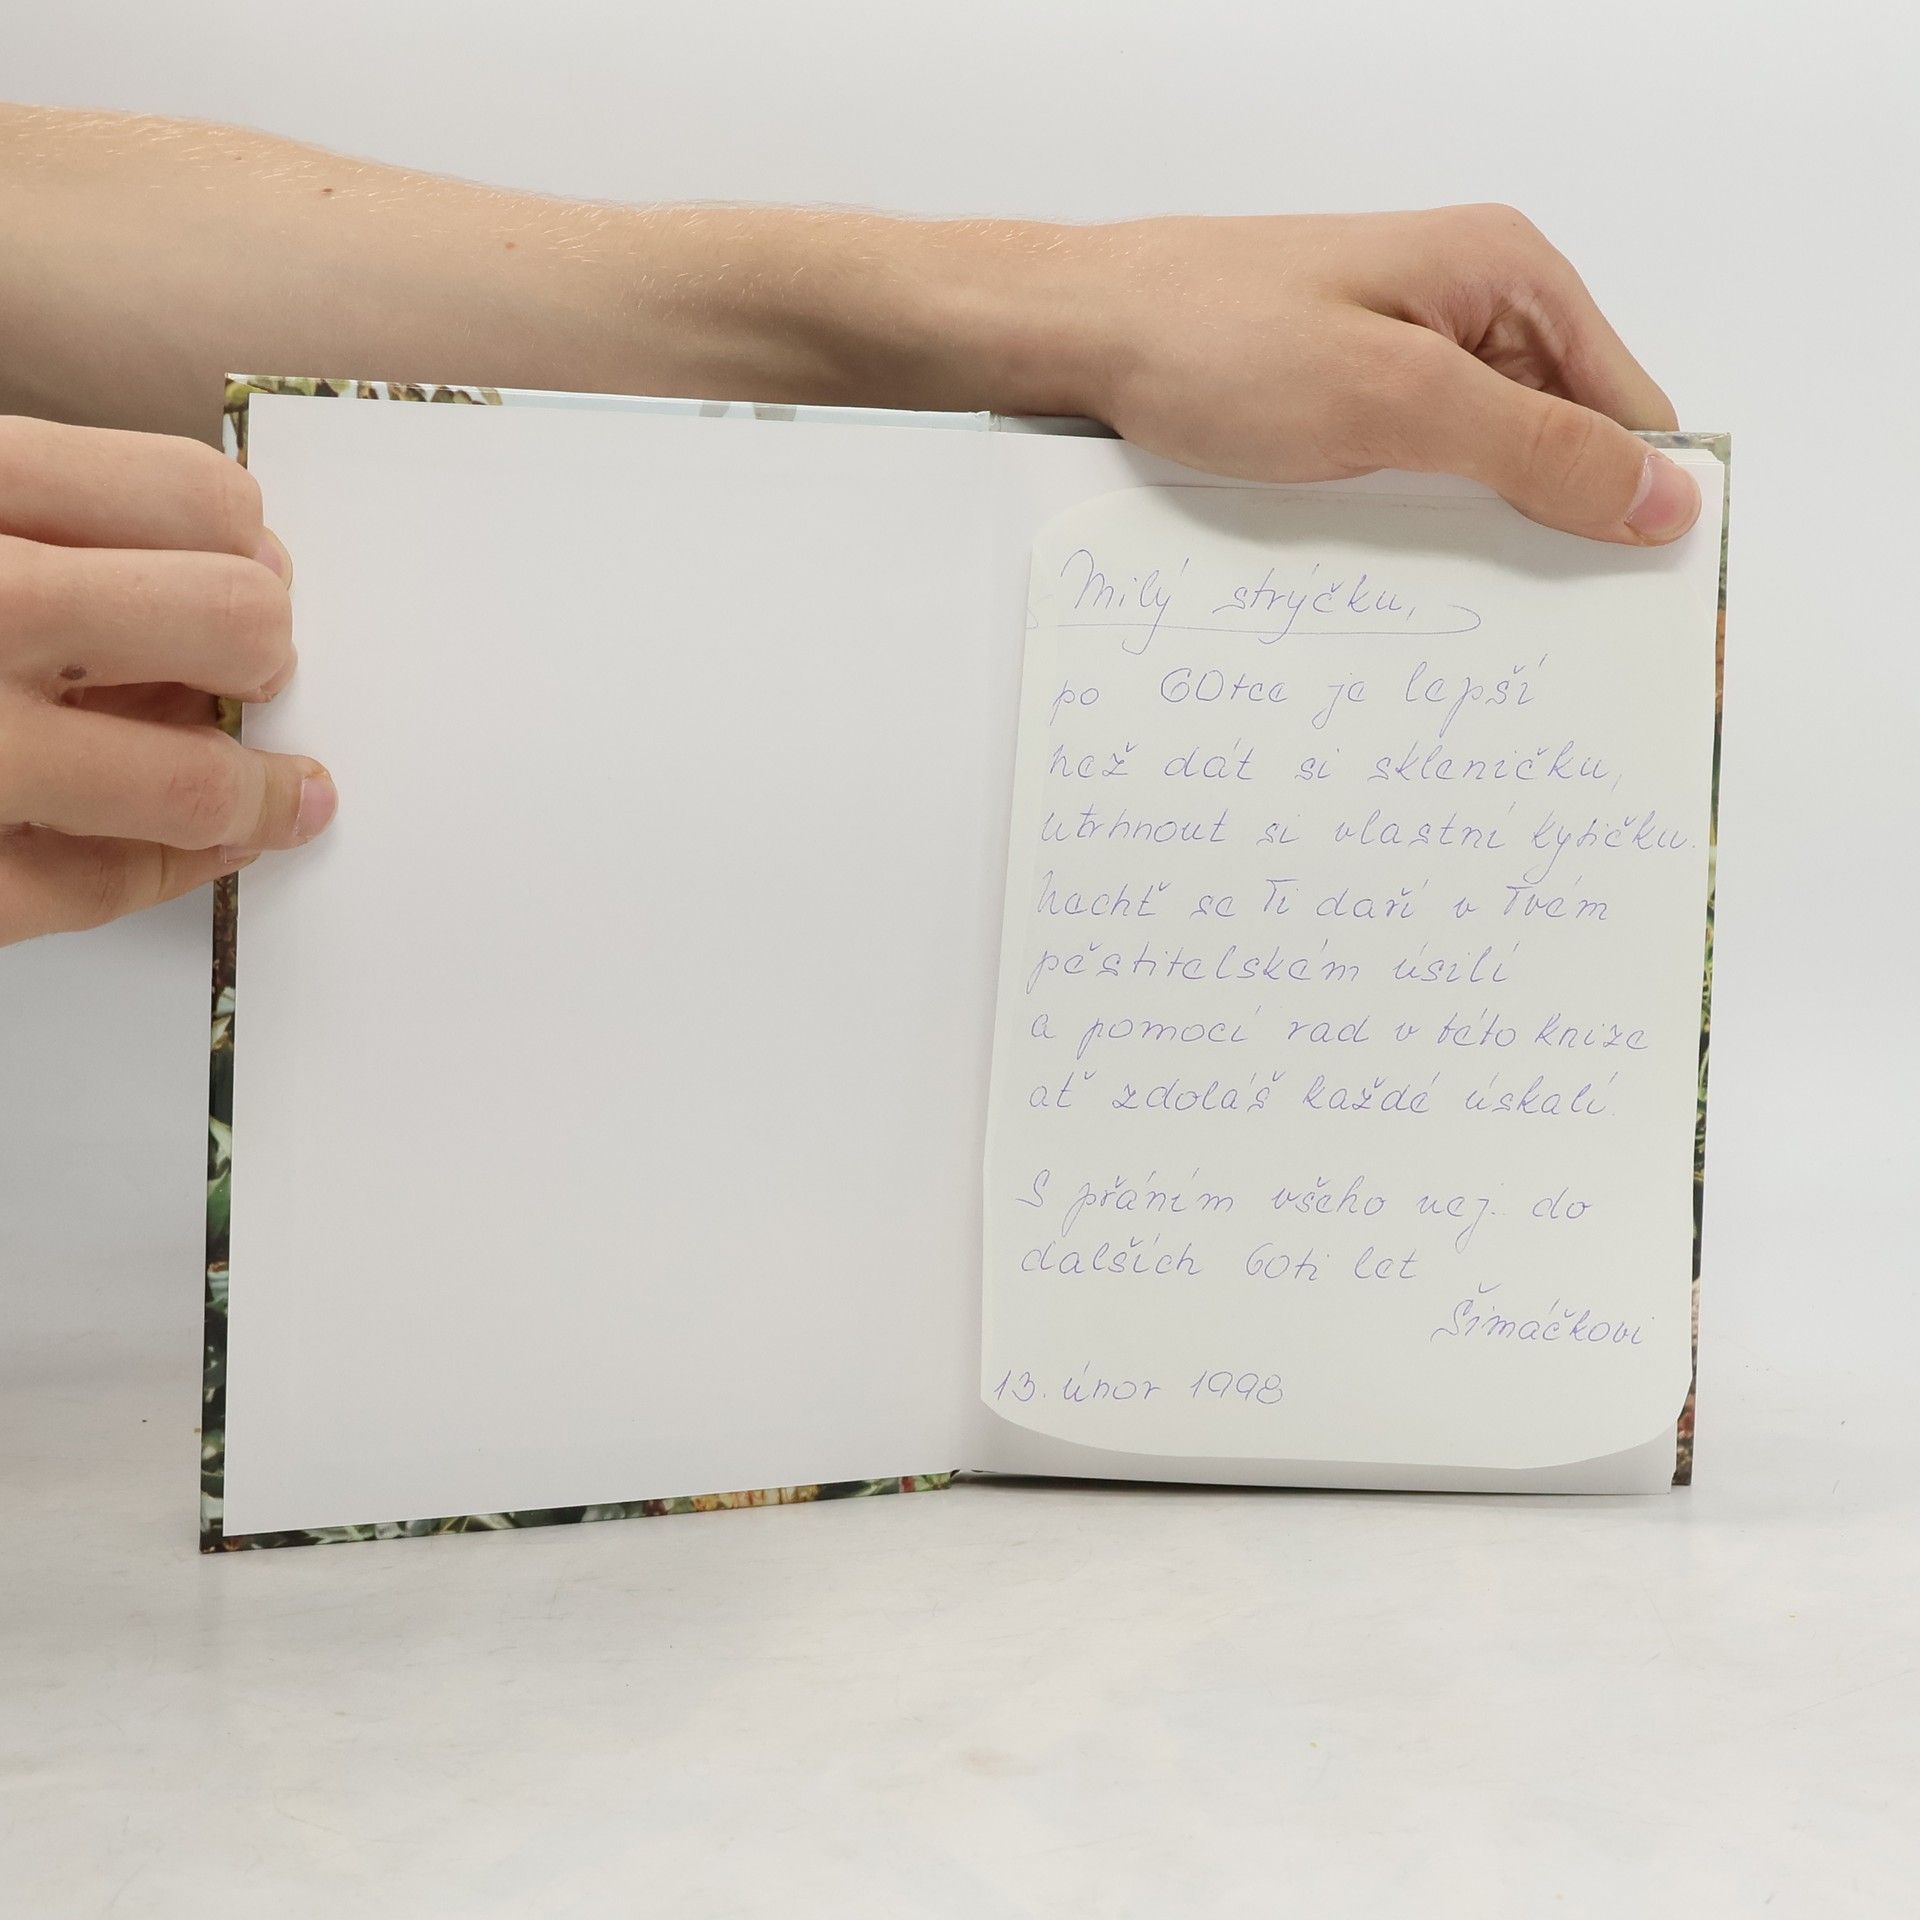 Milý strýčku,
po 60tce je lepší
než dát si skleničku,
utrhnout si vlastní kytičku.
Nechť se Ti daří v Tvém
pěstitelském úsilí
a pomocí rad v této knize
ať zdoláš každé úskalí.
S přáním všeho nej. do
dalších 60ti let
Šimáčkovi
13. únor 1998